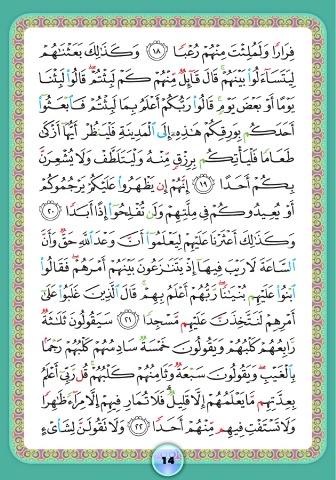 فِرَارًا وَلَمُلِئْتَ مِنْهُمْ رُعْبًا ﴿١٨﴾ وَكَذَٰلِكَ بَعَثْنَاهُمْ
لِيَتَسَاءَلُوا بَيْنَهُمْ ۚ قَالَ قَائِلٌ مِنْهُمْ كَمْ لَبِثْتُمْ ۖ قَالُوا لَبِثْنَا
يَوْمًا أَوْ بَعْضَ يَوْمٍ ۚ قَالُوا رَبُّكُمْ أَعْلَمُ بِمَا لَبِثْتُمْ فَابْعَثُوا
أَحَدَكُمْ بِوَرِقِكُمْ هَٰذِهِ إِلَى الْمَدِينَةِ فَلْيَنْظُرْ أَيُّهَا أَزْكَىٰ
طَعَامًا فَلْيَأْتِكُمْ بِرِزْقٍ مِنْهُ وَلْيَتَلَطَّفْ وَلَا يُشْعِرَنَّ
بِكُمْ أَحَدًا ﴿١٩﴾ إِنَّهُمْ إِنْ يَظْهَرُوا عَلَيْكُمْ يَرْجُمُوكُمْ
أَوْ يُعِيدُوكُمْ فِي مِلَّتِهِمْ وَلَنْ تُفْلِحُوا إِذًا أَبَدًا ﴿٢٠﴾
وَكَذَٰلِكَ أَعْثَرْنَا عَلَيْهِمْ لِيَعْلَمُوا أَنَّ وَعْدَ اللَّهِ حَقٌّ وَأَنَّ
السَّاعَةَ لَا رَيْبَ فِيهَا إِذْ يَتَنَازَعُونَ بَيْنَهُمْ أَمْرَهُمْ ۖ فَقَالُوا
ابْنُوا عَلَيْهِمْ بُنْيَانًا ۖ رَبُّهُمْ أَعْلَمُ بِهِمْ ۚ قَالَ الَّذِينَ غَلَبُوا عَلَىٰ
أَمْرِهِمْ لَنَتَّخِذَنَّ عَلَيْهِمْ مَسْجِدًا ﴿٢١﴾ سَيَقُولُونَ ثَلَاثَةٌ
رَابِعُهُمْ كَلْبُهُمْ وَيَقُولُونَ خَمْسَةٌ سَادِسُهُمْ كَلْبُهُمْ رَجْمًا
بِالْغَيْبِ ۖ وَيَقُولُونَ سَبْعَةٌ وَثَامِنُهُمْ كَلْبُهُمْ ۚ قُلْ رَبِّي أَعْلَمُ
بِعِدَّتِهِمْ مَا يَعْلَمُهُمْ إِلَّا قَلِيلٌ ۗ فَلَا تُمَارِ فِيهِمْ إِلَّا مِرَاءً ظَاهِرًا
وَلَا تَسْتَفْتِ فِيهِمْ مِنْهُمْ أَحَدًا ﴿٢٢﴾ وَلَا تَقُولَنَّ لِشَايْءٍ
14